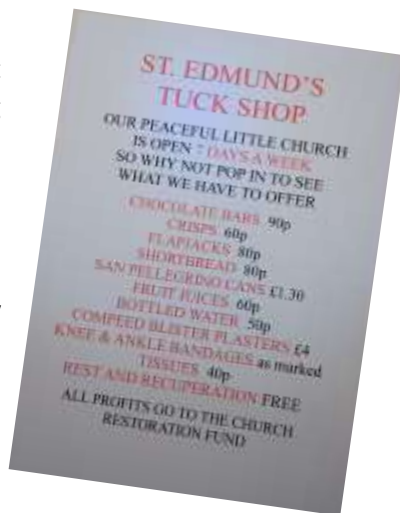 ST. EDMUND'S
TUCK SHOP
OUR PEACEFUL LITTLE CHURCH
IS OPEN DAYS A WEEK
SO WHY NOT POP IN TO SEE
WHAT WE HAVE TO OFFER
CHOCOLATE BARS 90p
CRISPS 60p
FLAPJACKS 80p
SHORTBREAD 80p
SAN PELLEGRINO CANS £1.30
FRUIT JUICES 60p
BOTTLED WATER 50p
COMPEED BLISTER PLASTERS £4
KNEE & ANKLE BANDAGES as marked
TISSUES 40p
REST AND RECUPERATION FREE
ALL PROFITS GO TO THE CHURCH
RESTORATION FUND